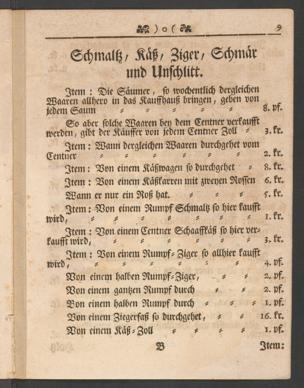 )o( 9
Schmaltz, Käß, Ziger, Schmär
und Unschlitt.
Item: Die Säumer, so wochentlich dergleichen
Waaren allhero in das Kauffhauß bringen, geben von
jedem Saum 8. pf.
So aber solche Waaren bey dem Centner verkaufft
werden, gibt der Käuffer von jedem Centner Zoll 3. kr.
Item: Wann dergleichen Waaren durchgehet vom
Centner 2. kr.
Item: Von einem Käßwagen so durchgehet 8. kr.
Item: Von einem Käßkarren mit zweyen Rossen 6. kr.
Wann er nur ein Roß hat. 5. kr.
Item: Von einem Rumpf Schmaltz so hier kaufft
wird, 1. kr.
Item: Von einem Centner Schaafkäß so hier ver-
kaufft wird, 3. kr.
Item: Von einem Rumpf-Ziger so allhier kaufft
wird, 4. pf.
Von einem halben Rumpf-Ziger, 2. pf.
Von einem gantzen Rumpf durch 2. pf.
Von einem halben Rumpf durch 1. pf.
Von einem Ziegerfaß so durchgehet, 16. kr.
Von einem Käß-Zoll 1. pf.
B Item: